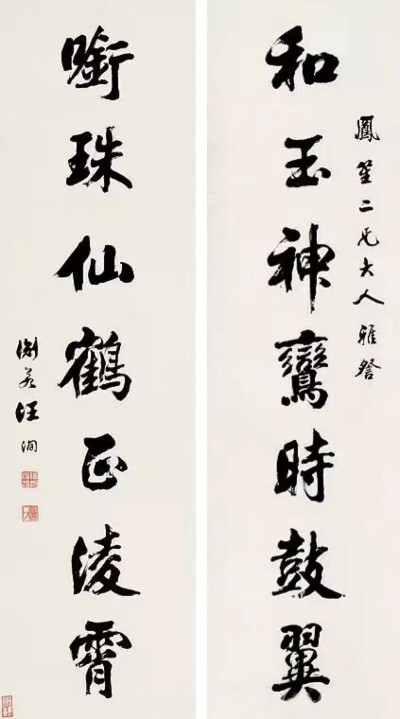 鳳笙二兄大人雅詧
和玉神鸞時鼓翼
㘅珠仙鶴正淩霄
淵若汪洵